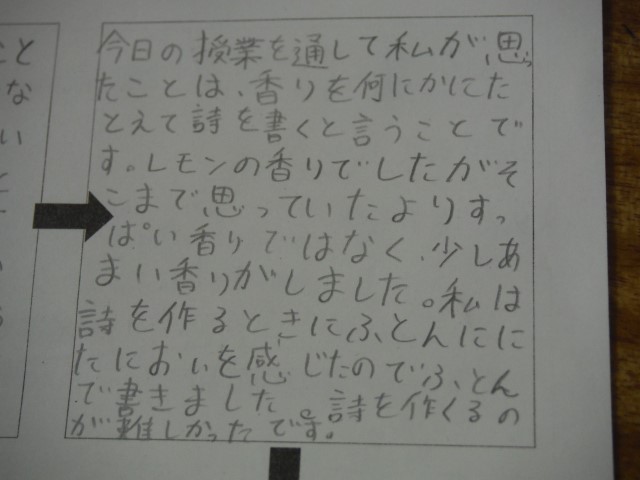 今日の授業を通して私が思っ
たことは、香りを何にかにた
とえて詩を書くと言うことで
す。レモンの香りでしたがそ
こまで思っていたよりすっ
ぱい香りではなく、少しあ
まい香りがしました。私は
詩を作るときにふとんにに
たにおいを感じたのでふとん
で書きました。詩を作くるの
が難しかったです。
こと
な
い